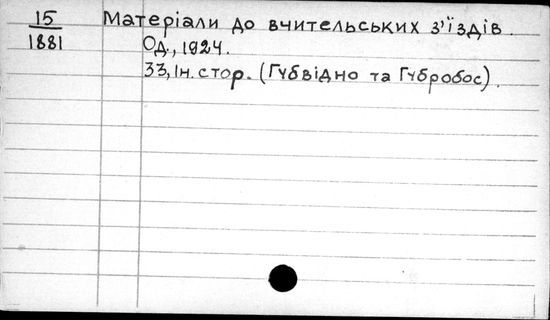 15 Матеріали до вчительських з'їздів.
1881 Од., 1924.
33, Ін. стор. (Губвідно та Губробос).